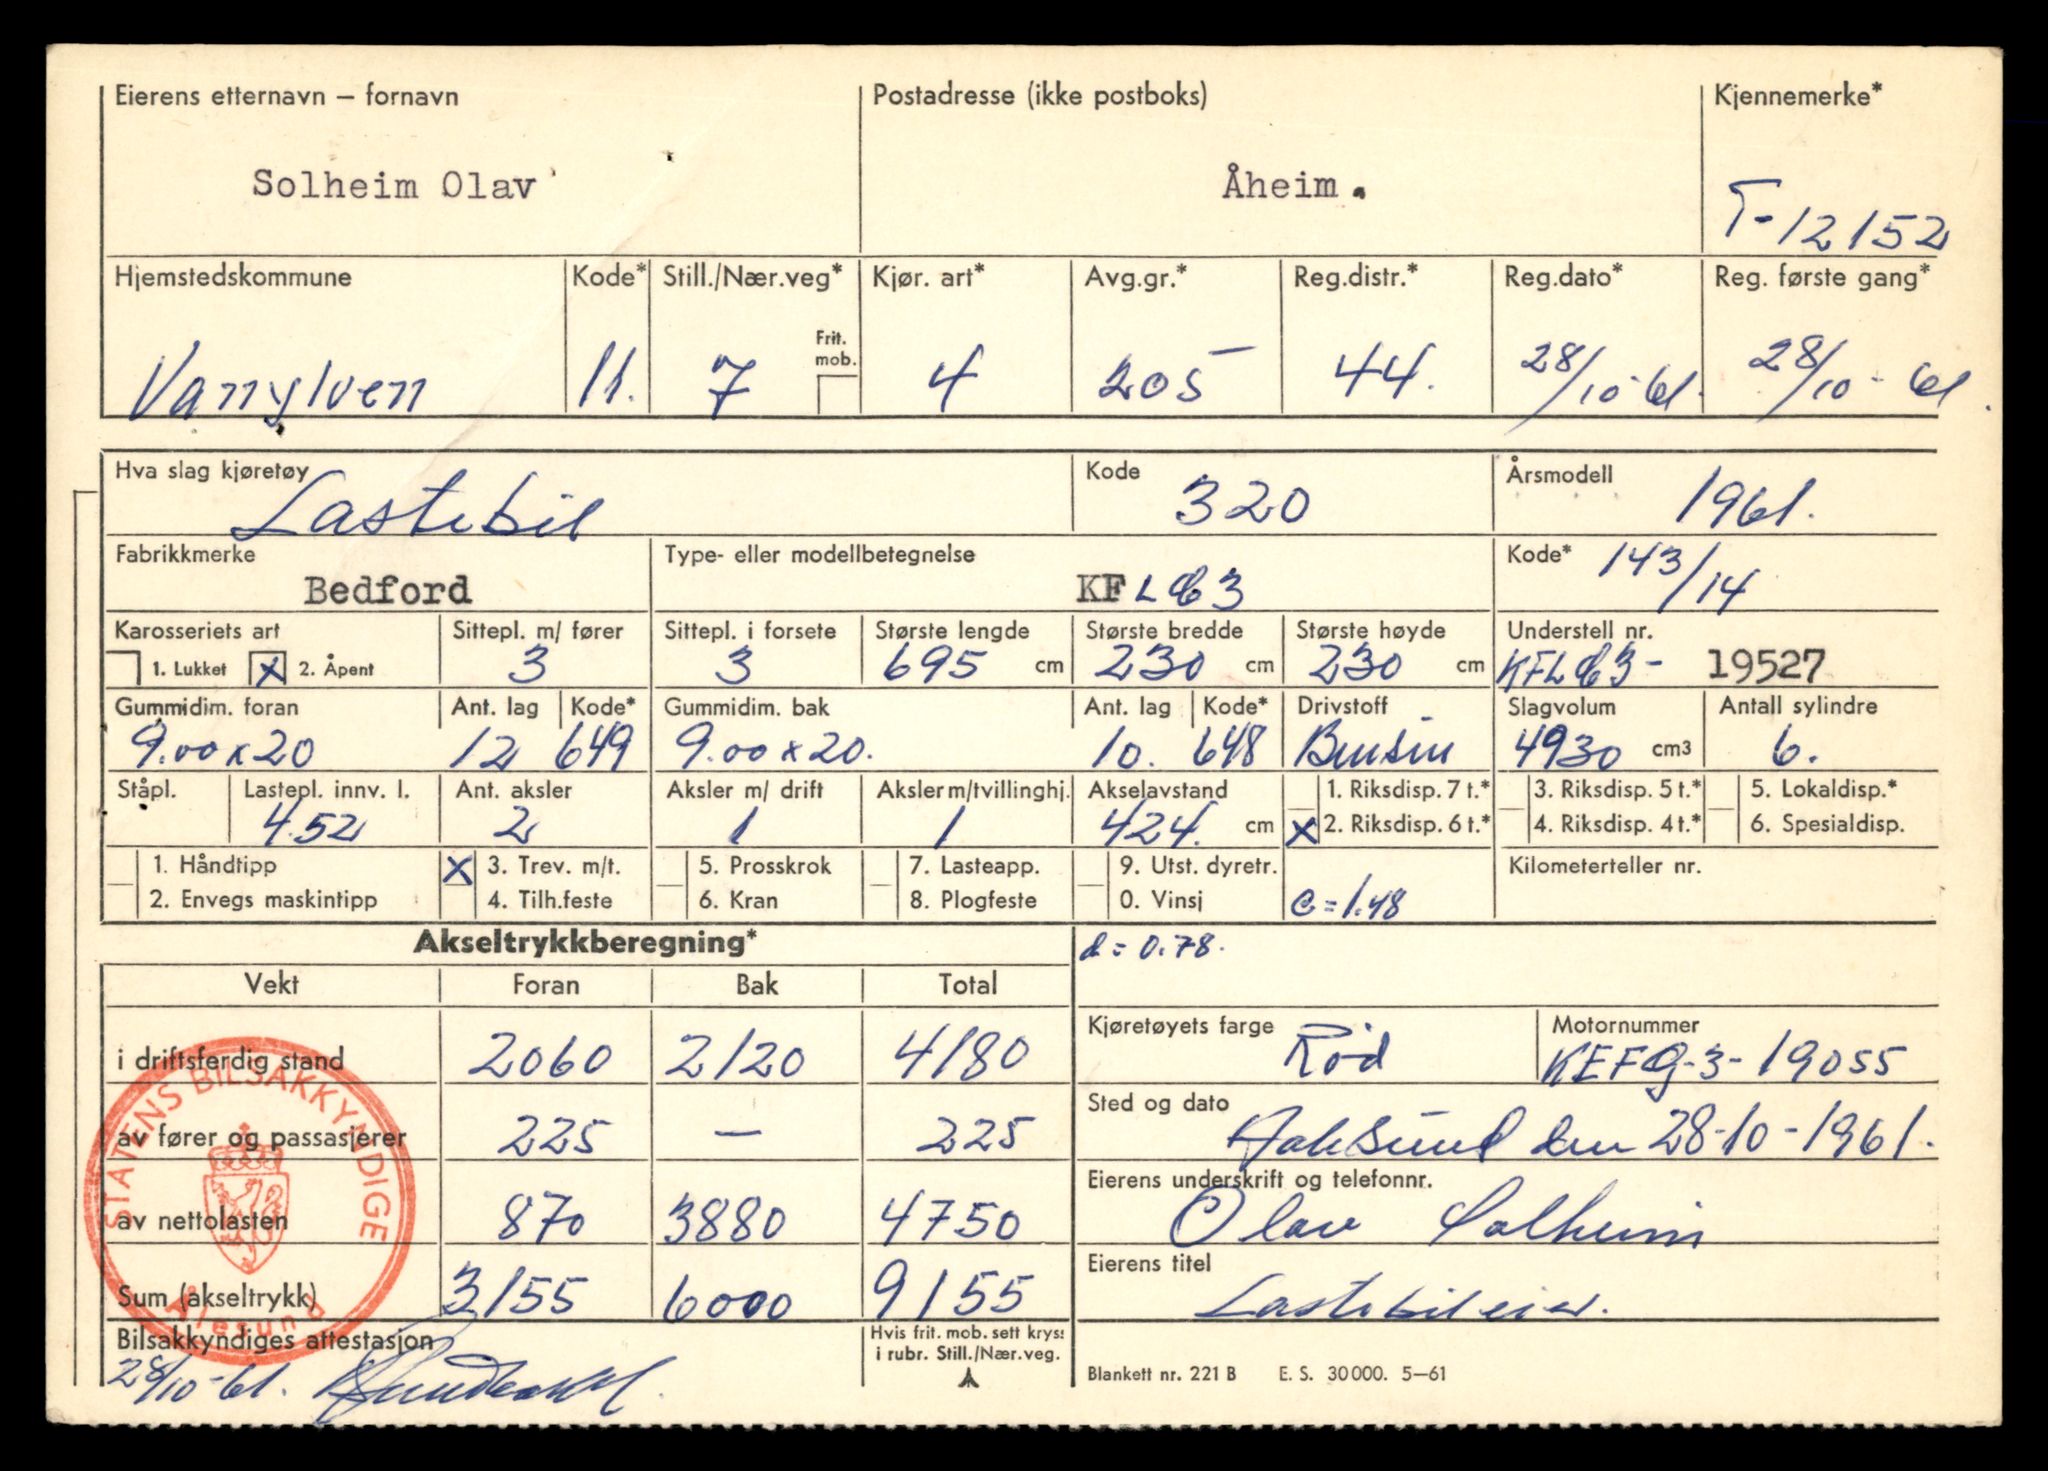 Eierens etternavn – fornavn
Postadresse (ikke postboks)
Kjennemerke*
Solheim Olav
Åheim.
T-12152
Hjemstedskommune
Kode*
Still./Nær.veg*
Kjør. art*
Avg.gr.*
Reg.distr.*
Reg.dato*
Reg. første gang*
Frit. mob.
Vanylven
11.
7
4
205
44.
28/10-61.
28/10-61.
Hva slag kjøretøy
Lastebil
Kode
320
Årsmodell
1961.
Fabrikkmerke
Bedford
Type- eller modellbetegnelse
KFLC3
Kode*
143/14
Karosseriets art
1. Lukket
x 2. Åpent
Sittepl. m/ fører
3
Sittepl. i forsete
3
Største lengde
695 cm
Største bredde
230 cm
Største høyde
230 cm
Understell nr.
KFLC3- 19527
Gummidim. foran
9.00x20
Ant. lag
12
Kode*
649
Gummidim. bak
9.00x20.
Ant. lag
10.
Kode*
648
Drivstoff
Bensin
Slagvolum
4930 cm3
Antall sylindre
6.
Ståpl.
Lastepl. innv. l.
4.52
Ant. aksler
2
Aksler m/ drift
1
Aksler m/tvillinghj.
1
Akselavstand
424. cm
1. Riksdisp. 7 t.*
x 2. Riksdisp. 6 t.*
3. Riksdisp. 5 t.*
4. Riksdisp. 4 t.*
5. Lokaldisp.*
6. Spesialdisp.
1. Håndtipp
2. Envegs maskintipp
x 3. Trev. m/t.
4. Tilh.feste
5. Prosskrok
6. Kran
7. Lasteapp.
8. Plogfeste
9. Utst. dyretr.
0. Vinsj
c = 1.48
Kilometerteller nr.
Akseltrykkberegning*
d = 0.78.
Vekt
Foran
Bak
Total
i driftsferdig stand
2060
2120
4180
av fører og passasjerer
225
—
225
av nettolasten
870
3880
4750
Sum (akseltrykk)
3155
6000
9155
STATENS BILSAKKYNDIGE
Ålesund
Bilsakkyndiges attestasjon
28/10-61.
Hvis frit. mob. sett kryss
i rubr. Still./Nær.veg.
Kjøretøyets farge
Rød
Motornummer
KEFG-3-19055
Sted og dato
den 28-10-1961.
Eierens underskrift og telefonnr.
Olav Solheim
Eierens titel
Lastebileier.
Blankett nr. 221 B E. S. 30000. 5–61